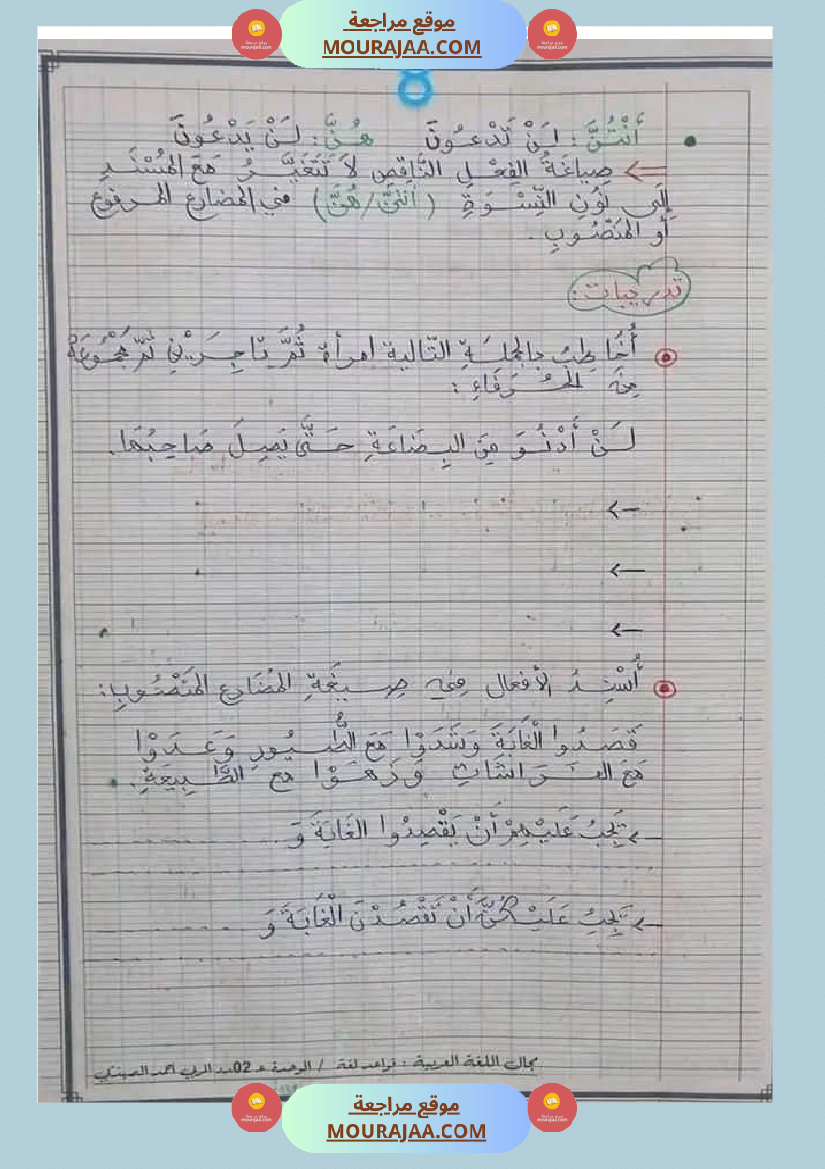 موقع مراجعة
MOURAJAA.COM
8
أَنْتُنَّ : لَنْ تَدْعُونَ هُنَّ : لَنْ يَدْعُونَ
صِيَاغَةُ الفِعْلِ النَّاقِصِ لَا تَتَغَيَّرُ مَعَ المُسْنَدِ
إِلَى نُونِ النِّسْوَةِ (أَنْتُنَّ/هُنَّ) في المضارع المرفوع
أو المَنْصُوبِ.
تدريبات:
أُخَاطِبُ بِالجُمْلَةِ التّالية امرأة ثُمَّ تاجِرَيْنِ ثُمَّ مَجْمُوعَةً
مِنَ الحُرَفَاءِ :
لَنْ أَدْنُوَ مِنَ البِضَاعَةِ حَتَّى يَصِلَ صَاحِبُهَا.
أُسْنِدُ الأفعال في صِيغَةِ المُضَارِعِ المَنْصُوبِ:
قَصَدُوا الْغَابَةَ وَشَدَوْا مَعَ الطُّيُورِ وَعَدَوْا
مَعَ الفَرَاشَاتِ وَزَهَوْا مع الطَّبِيعَةِ.
يَجِبُ عَلَيْهِمْ أَنْ يَقْصِدُوا الغَابَةَ وَ
يَجِبُ عَلَيْكُنَّ أَنْ تَقْصُدْنَ الْغَابَةَ وَ
مجال اللغة العربية : قواعد لغة / الوحدة 02
موقع مراجعة
MOURAJAA.COM